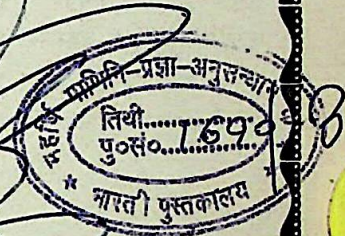 महर्षि पाणिनि-प्रज्ञा-अनुसन्धान
तिथी..........
पु०सं०..........
भारती पुस्तकालय